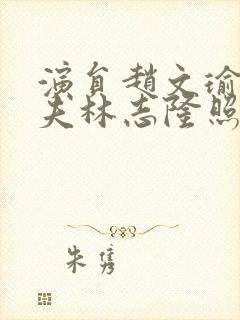 演員趙文瑜
夫林志隆照
朱雋